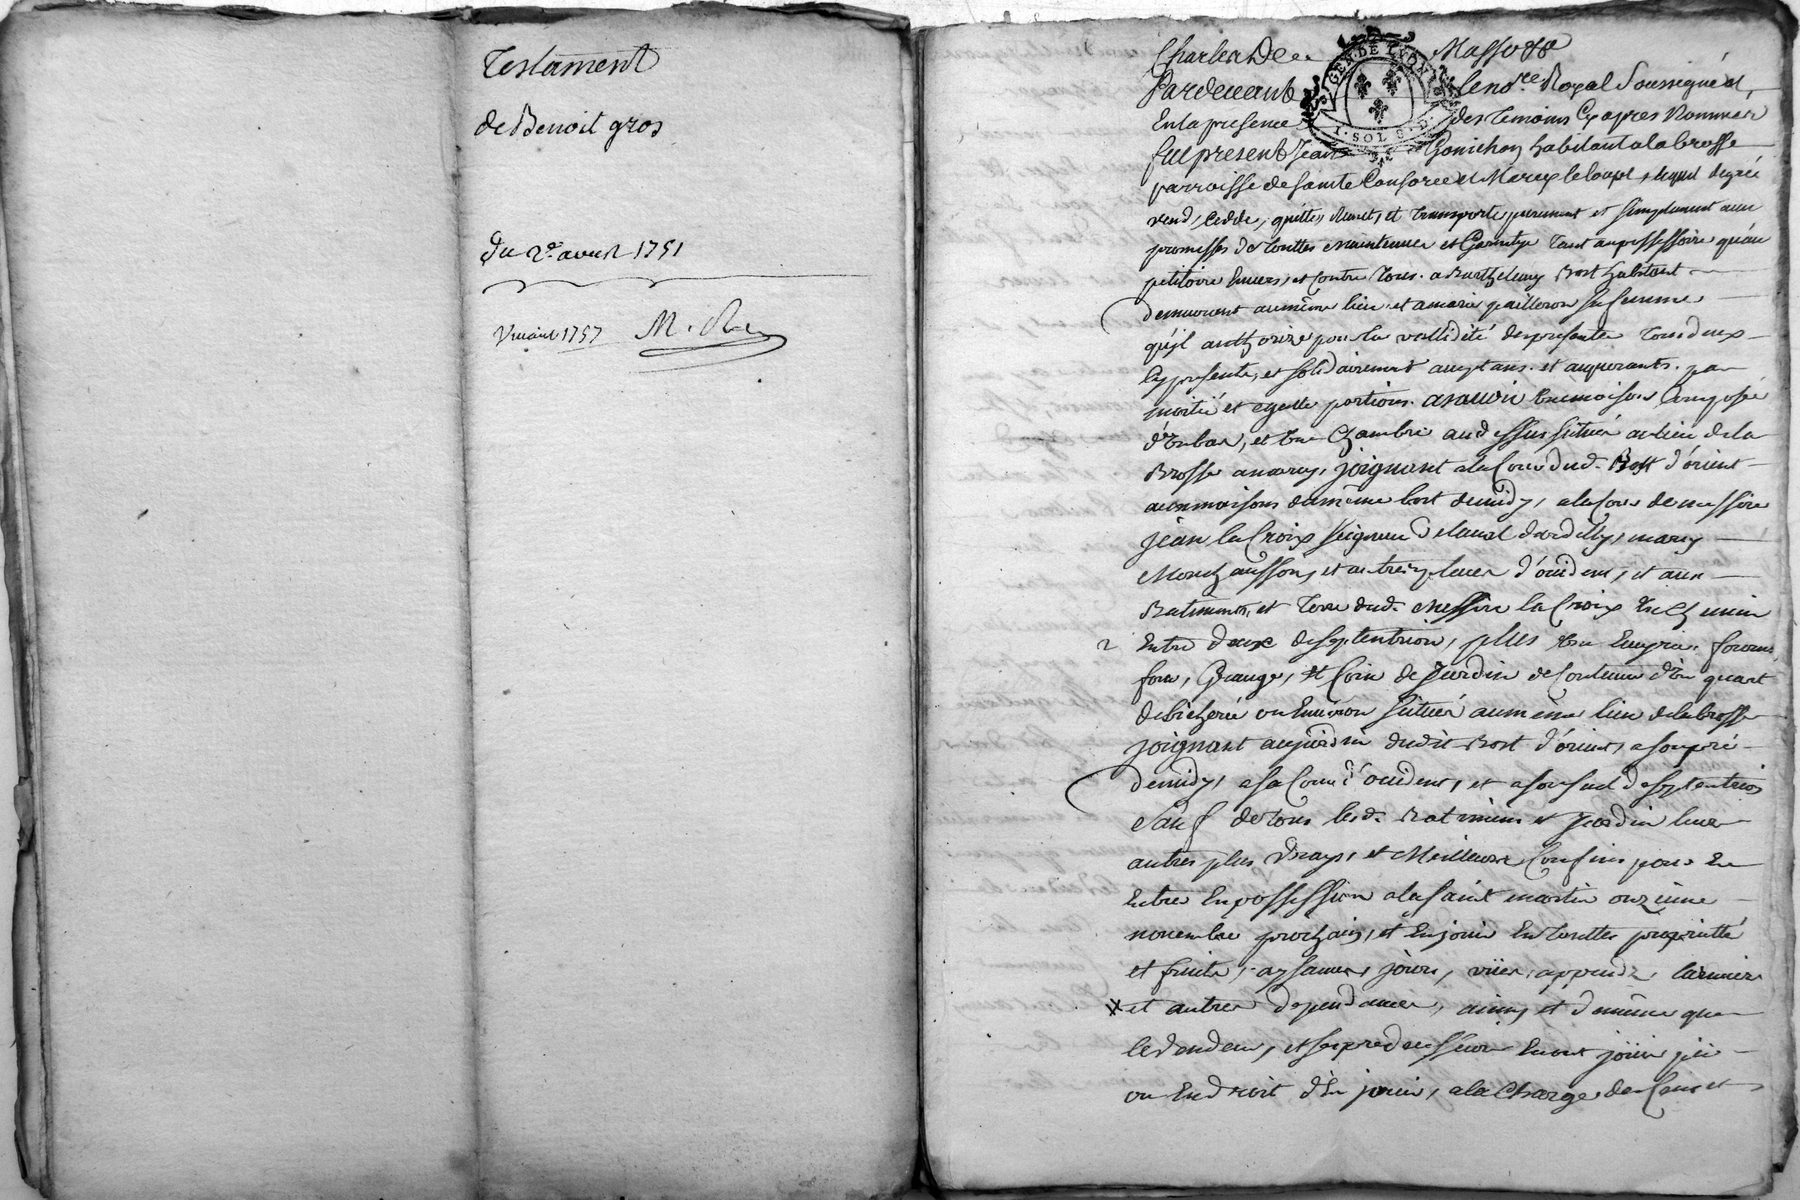 Testament
de Benoit gros
du 2e avril 1751
1757
Charles De Masso &a
Pardevant le nore Royal Soussigné et
En la presence des temoins Cy apres Nommés
fut present Jean Gonichon habitant a la brosse
parroisse de sainte Consorce et Marcy le loup, lequel de gré
vend, cedde, quitte, remet, et transporte purement et simplement avec
promesses de touttes maintenue et Garentye tant au possessoire qu'au
petitoire Envers, et contre tous. a Barthelemy Bost habitant
demeurant au même lieu et a marie pailleron sa femme
qu'il authorise pour la vallidité des presentes tous deux
Cy presents, et solidairement acceptans. et acquerants. par
moitié et egalle portions. asavoir Une maison Composée
d'Un bas, et Une Chambre au dessus située au lieu de la
Brosse a marcy, joignant a la Cour dud. Bost d'orient
aux maisons du même bost de midy, a la Cour de messire
jean la Croix seigneur de laval dardilly, marcy
Montchausson, et autres places d'occident, et aux
Batiments, et Terre dud. Messire la Croix Un Chemin
Entre deux de septentrion, plus Un
four, Grange, et Coin de Jardin de Contenue d'Un quart
de bicherée ou Environ situés au même lieu de la brosse
joignant au jardin dudit Bost d'orient, a son pré
de midy, a sa Cour d'occident, et a son sud de septentrion
Sauf de tous lesd. Batiments et Jardin leurs
autres plus Vrays, et Meilleurs Confins pour En
Entrer En possession a la saint martin onzieme
novembre prochain, et En jouir En touttes proprietté
et fruits, aysances, jours, vües, appends, larmiers
et autres dependances, ainsy et de même que
le Vendeur, et ses predecesseurs En ont joüi peü
ou En droit d'En jouir, a la Charge des Cens et